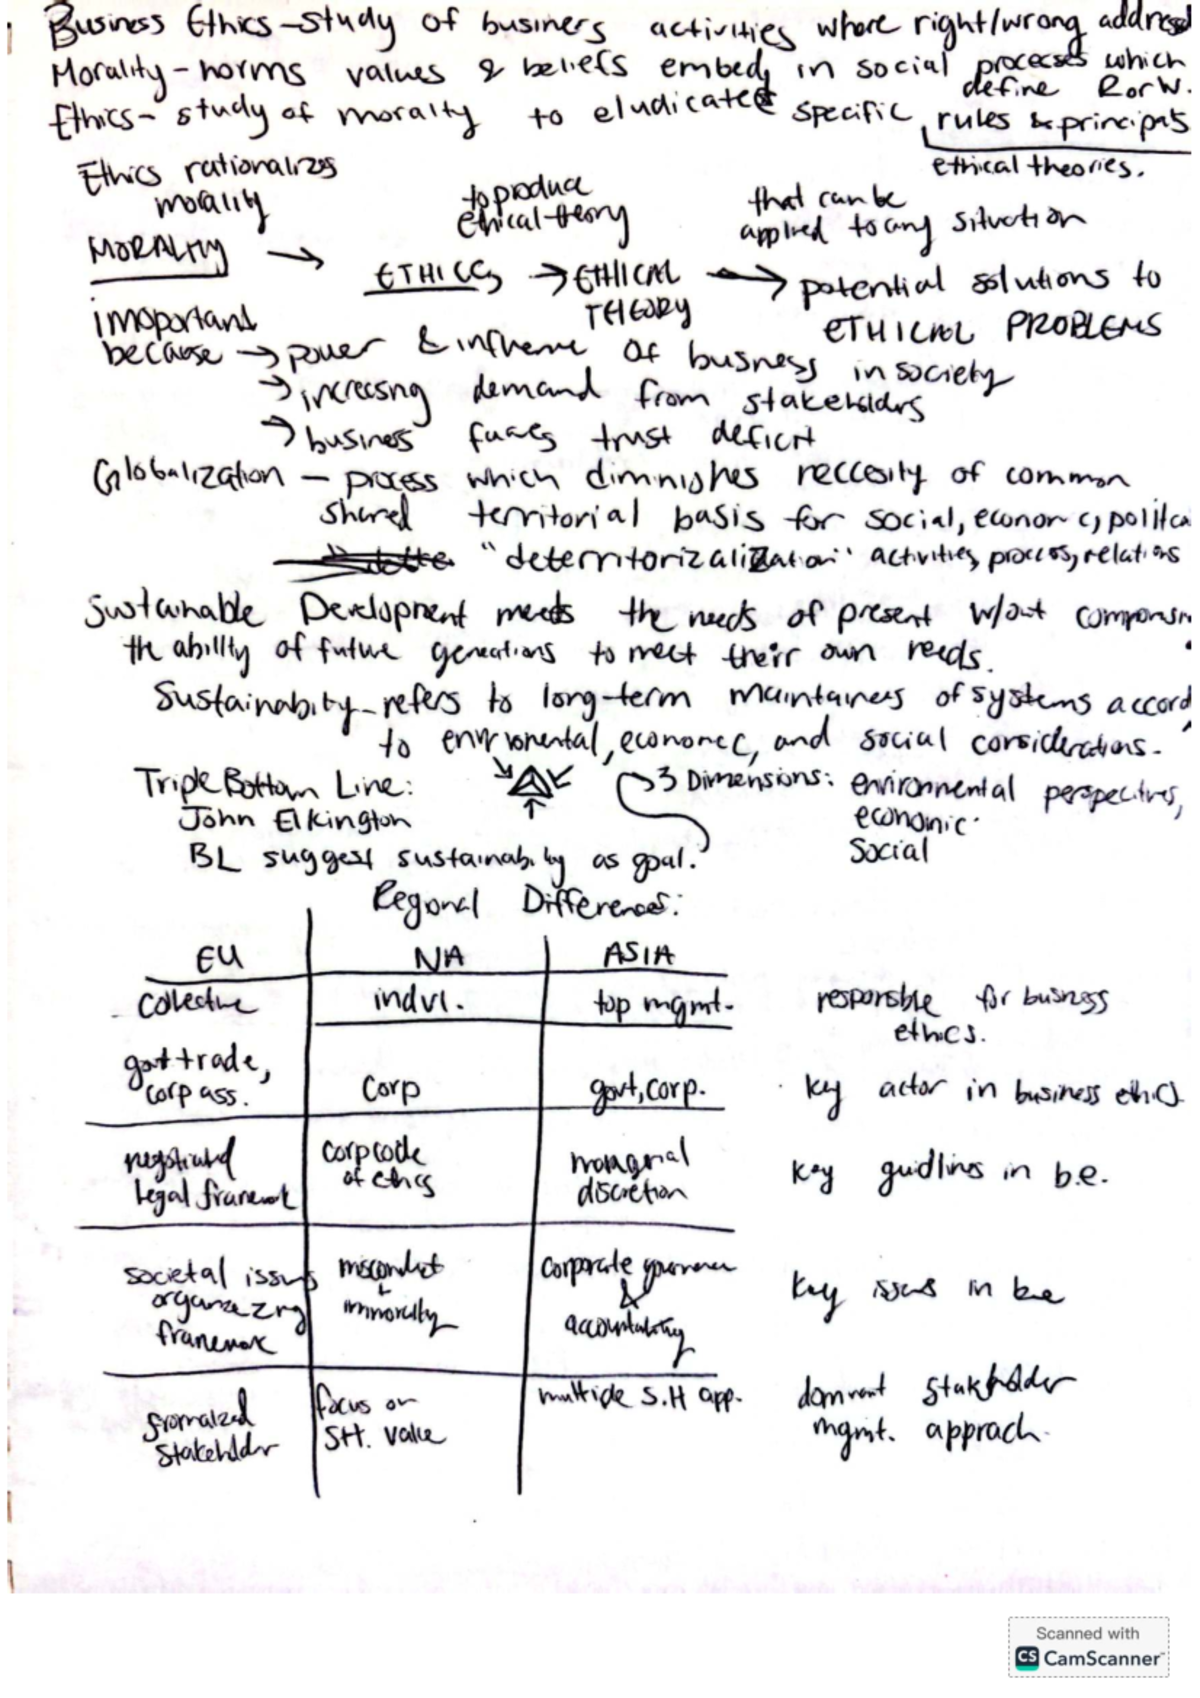 Business Ethics - study of business activities where right/wrong addressed
Morality - norms values & beliefs embed, in social processes which
define R or W.
Ethics - study of moralty to eludicated specific rules & principals
ethical theories.
Ethics rationalizes
morality
to produce
ethical theory
that can be
applied to any situation
MORALITY → ETHICS → ETHICAL
THEORY → potential solutions to
ETHICAL PROBLEMS
imoportant
because → power & influence of business in society
→ increasing demand from stakeholders
→ business faces trust deficit
Globalization - process which diminishes neccesity of common
shared territorial basis for social, economic, politica
"deterritorizalization" activities, process, relations
Sustainable Development meets the needs of present w/out
the ability of future generations to meet their own needs.
Sustainability - refers to long-term maintainers of systems accord
to environmental, economic, and social considerations.
Triple Bottom Line:
John Elkington
BL suggest sustainability as goal.
3 Dimensions: environmental perspectives,
economic
Social
Regional Differences:
EU NA ASIA
collective indvi. top mgmt. responsible for business
ethics.
govt trade,
corp ass. Corp govt, corp. key actor in business ethics
negotiated
legal framework corp code
of ethics managerial
discretion key guidlines in b.e.
societal issues
organizing
framework misconduct
+
immorality corporate governance
&
accountability key issues in b.e
fromalized
stakehlder focus on
S.H. value multiple S.H app. dominant stakeholder
mgmt. apprach.
Scanned with
CS CamScanner